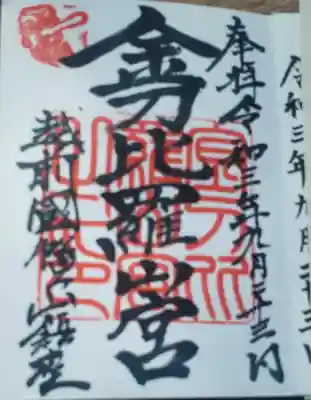 令和三年九月二十三日
奉拝令和三年九月二十三日
金刀比羅宮
越前國山鎮座